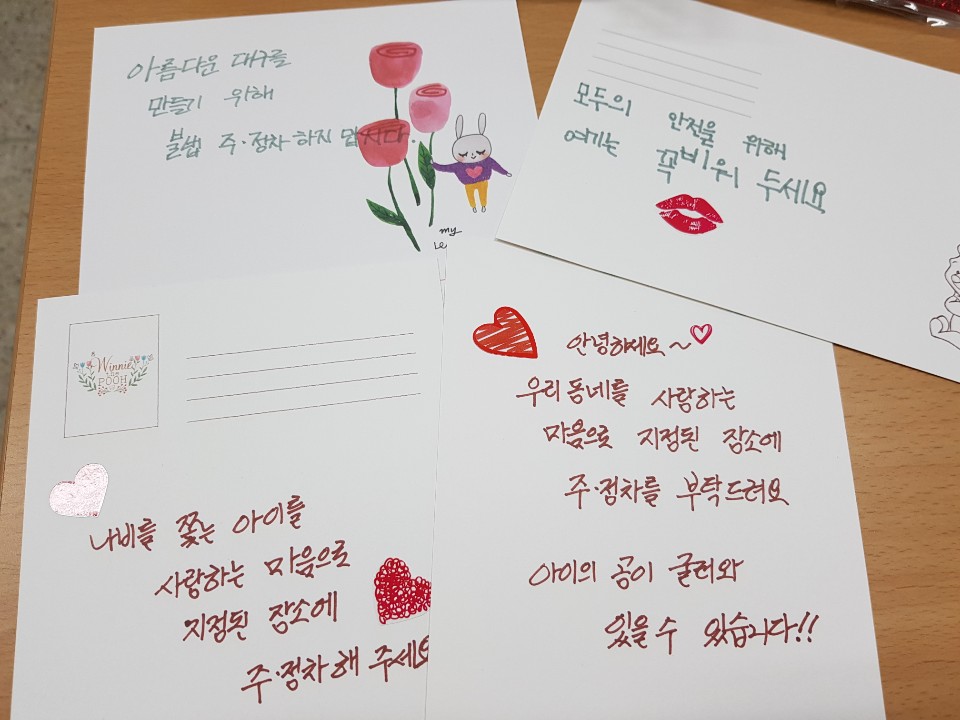 아름다운 대구를
만들기 위해
불법 주·정차하지 맙시다.
my
모두의 안전을 위해
여기는 꼭비워 두세요
Winnie
THE
POOH
나비를 쫓는 아이를
사랑하는 마음으로
지정된 장소에
주·정차해 주세요
안녕하세요~
우리동네를 사랑하는
마음으로 지정된 장소에
주·정차를 부탁드려요
아이의 공이 굴러와
있을수 있습니다!!